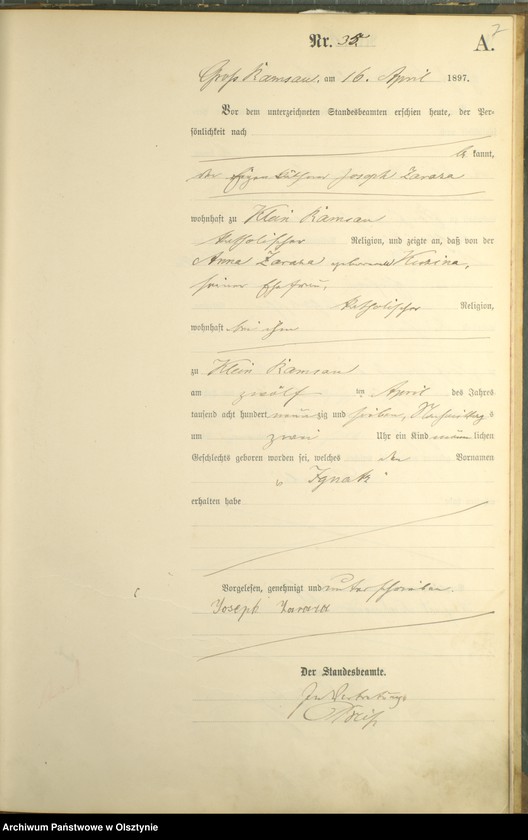 Nr. 35.
A.
Groß Ramsau, am 16. April 1897.
Vor dem unterzeichneten Standesbeamten erschien heute, der Per-
sönlichkeit nach
be kannt,
der Joseph Zarara
wohnhaft zu Klein Ramsau
katholischer Religion, und zeigte an, daß von der
Anna Zarara geborene
seiner Ehefrau,
katholischer Religion,
wohnhaft bei ihm
zu Klein Ramsau
am zwölf ten April des Jahres
tausend acht hundert neunzig und sieben, Nachmittags
um zwei Uhr ein Kind männlichen
Geschlechts geboren worden sei, welches den Vornamen
Ignatz
erhalten habe
Vorgelesen, genehmigt und unterschrieben.
Joseph Zarara
Der Standesbeamte.
In Vertretung
Archiwum Państwowe w Olsztynie